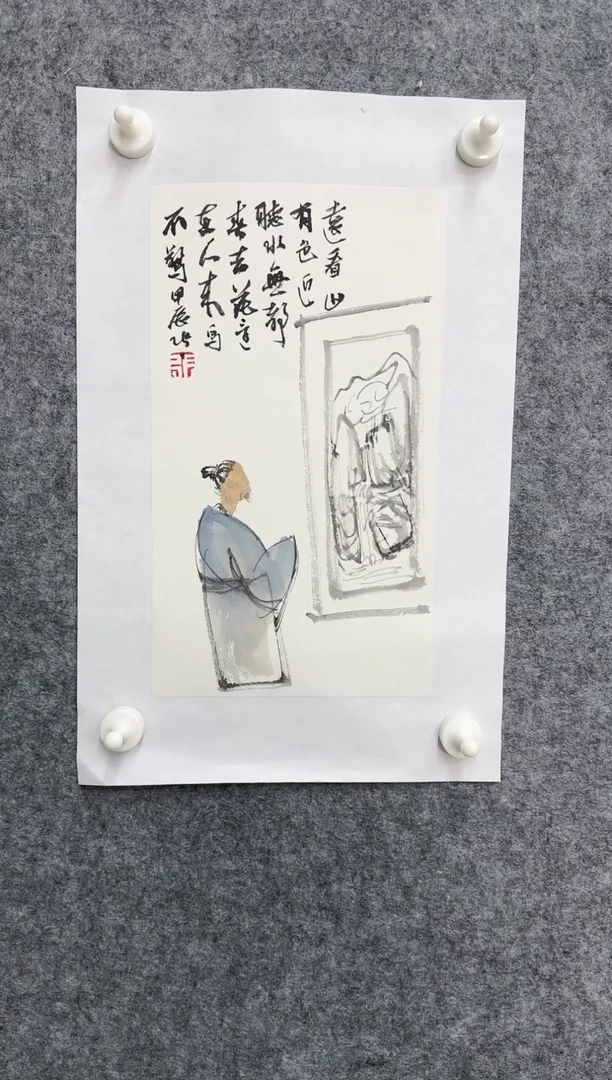 遠看山
有色近
聽水無聲
春去花還
在人來鳥
不驚甲辰